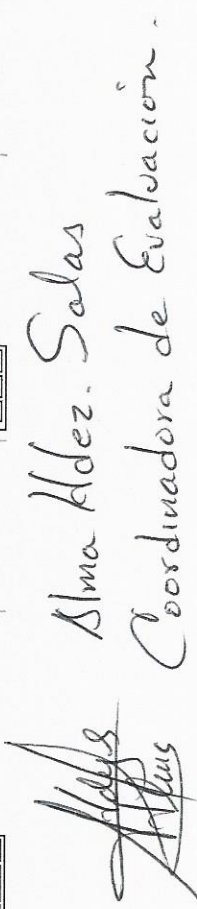 Alma Hdez. Salas
Coordinadora de Evaluación.